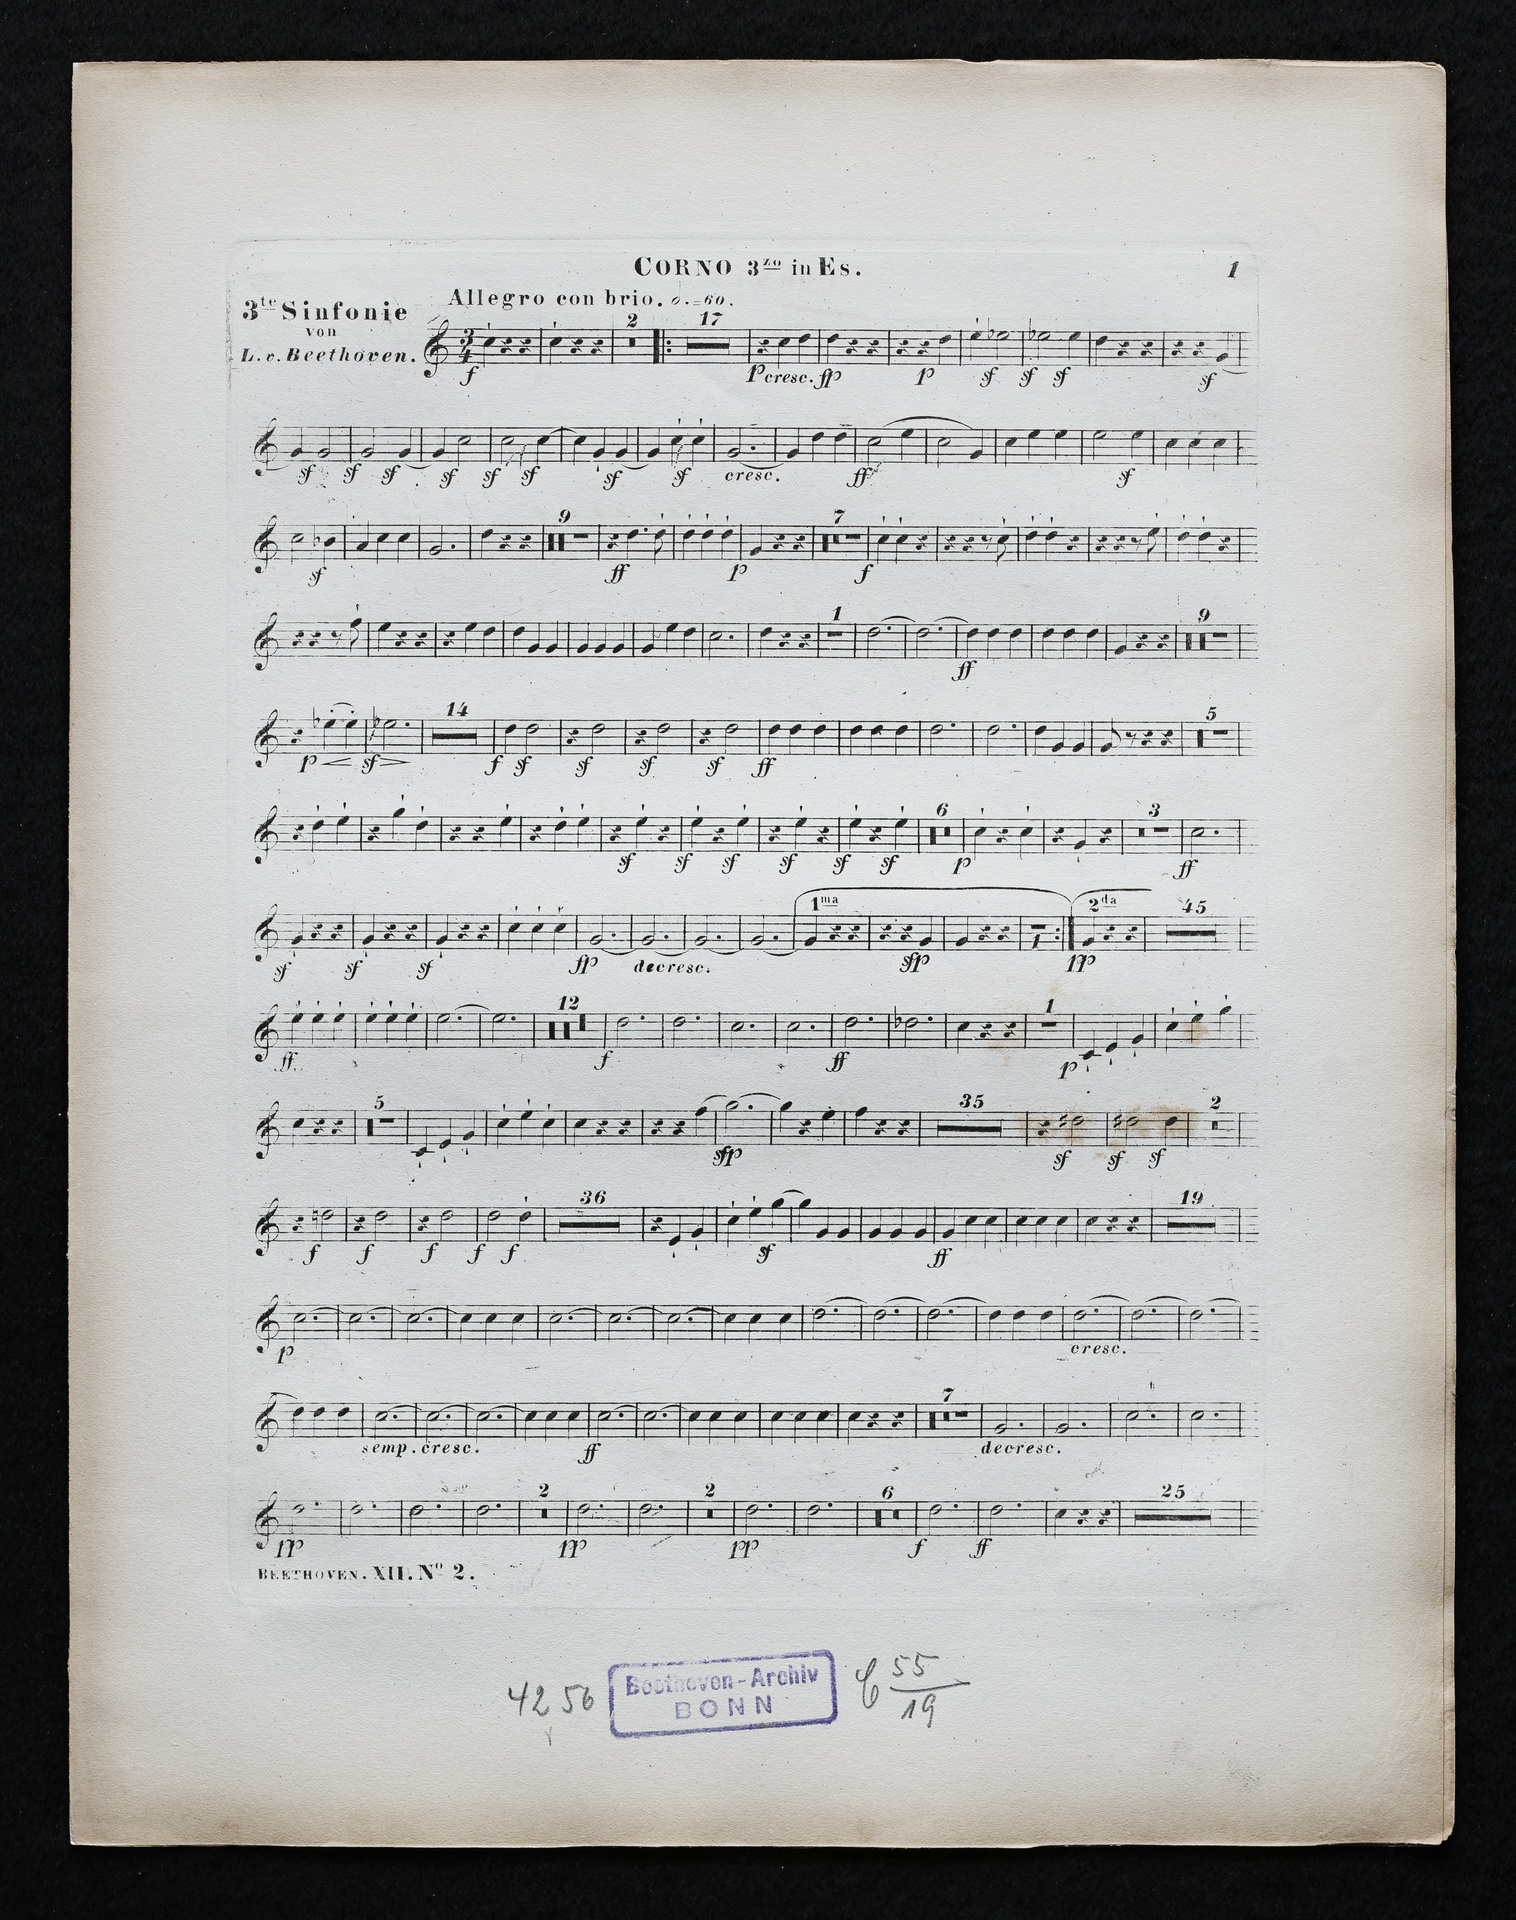 CORNO 3zo in Es.
1
3te Sinfonie
von
L. v. Beethoven.
Allegro con brio. 𝅗𝅥. = 60.
2 17
f p cresc. fp p sf sf sf sf
sf sf sf sf sf sf sf sf cresc. ff sf
9 7
sf ff p f
1 9
ff
14 5
p sf f sf sf sf sf ff
6 3
sf sf sf sf sf sf p ff
1ma 2da 45
sf sf sf fp decresc. 1 sfp pp
12 1
ff. f ff p
5 35 2
sfp sf sf sf
36 19
f f f f f sf ff
p cresc.
7
semp. cresc. ff decresc.
2 2 6 25
pp pp pp f ff
BEETHOVEN. XII. No 2.
4256
Beethoven-Archiv
BONN
C 55/19